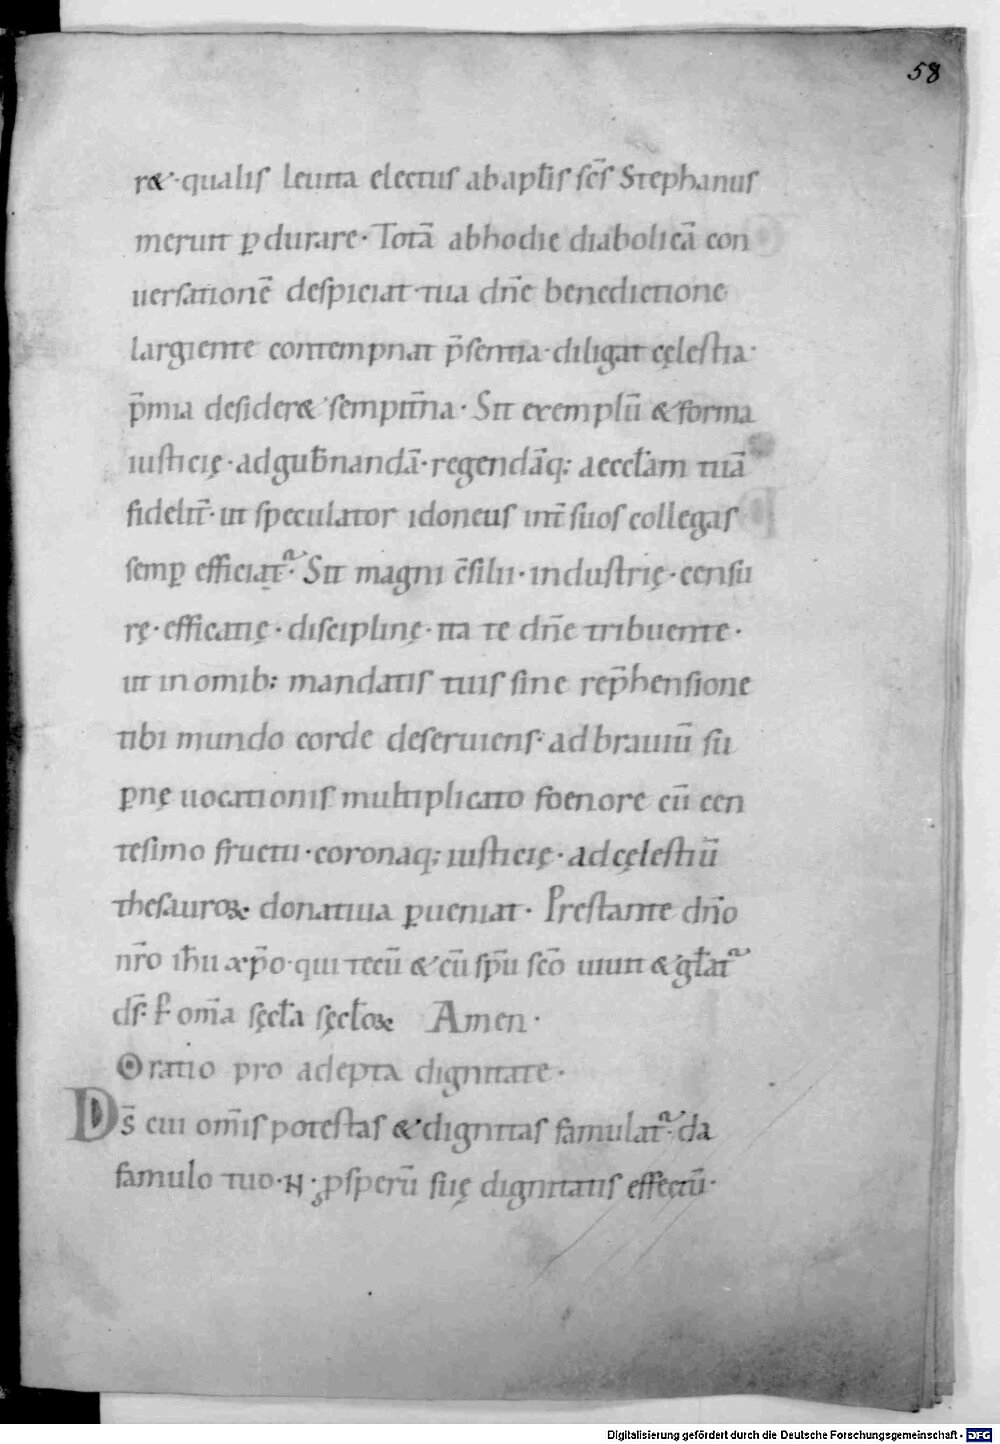 58
r&·qualis leuita electus ab apl̄is sc̄s Stephanus
meruit ꝑdurare· Totā abhodie diabolicā con
uersationē despiciat·tua dn̄e benedictione
largiente contempnat p̄sentia·diligat cęlestia·
p̄mia desider&·sempit̄na· Sit exemplū & forma
iusticię·adgub̄nandā·regendāq; aeccl̄am tuā
fidelit̄·ut speculator idoneus int̄ suos collegas
semꝑ efficiat᷑· Sit magni c̄silii·industrię·censu
rę·efficatię·disciplinę·ita te dn̄e tribuente·
ut in omib; mandatis tuis sine rep̄hensione
tibi mundo corde deseruiens·ad brauiū su
ꝑnę uocationis multiplicato foenore cū cen
tesimo fructu·coronaq; iusticię·ad cęlestiū
thesauroꝝ donatiua ꝑueniat· Prestante dn̄o
nr̄o ih̄u xp̄o·qui tecū & cū sp̄u sc̄o uiuit & gl̄at᷑
ds̄· ꝑ om̄ia sęcl̄a sęcl̄oꝝ Amen·
Oratio pro adepta dignitate·
Ds̄ cui om̄is potestas & dignitas famulat᷑·da
famulo tuo·N·ꝓsperū suę dignitatis effectū·
Digitalisierung gefördert durch die Deutsche Forschungsgemeinschaft - DFG